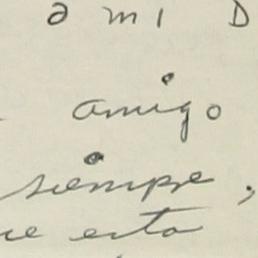 a mi D
amigo
siempre,
ue esta